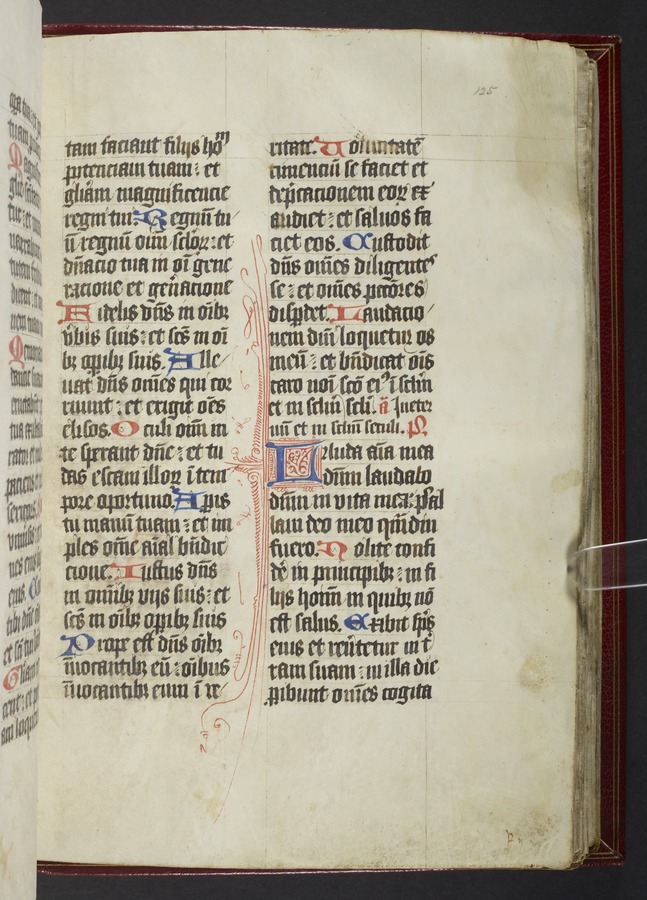 125
tam faciant filijs hoīm
potenciam tuam : et
gliam magnificencie
regni tui. Regnū tu
ū regnū oīm sclor : et
dnacio tua in oī gene
racione et genacione
Fidelis dns in oībz
vbis suis : et scs in oī
bz opibz suis. Alle
uat dns omēs qui cor
ruunt : et erigit oēs
elisos. Oculi oīm in
te sperant dne : et tu
das escam illor ī tem
pore oportuno. Apis
tu manū tuam : et im
ples omē aīal bndic
cione. Iustus dns
in omībz vijs suis : et
scs in oībz opibz suis
Prope est dns oībz
īuocantibz eū : oībus
īuocantibz eum ī ve
ritate. Voluntatē
timenciū se faciet et
depcacionem eor ex
audiet : et saluos fa
ciet eos. Custodit
dns omēs diligentes
se : et omēs pccōres
dispdet. Laudacio
nem dni loquetur os
meū : et bndicat oīs
caro noī scō eiꝰ ī sclm
et in sclm scli. a In eter
nū et in sclm seculi. Ps
Lauda aīa mea
dnm laudabo
dnm in vita mea : psal
lam deo meo qmdiu
fuero. Nolite confi
dē in principibz : in fi
lijs hoīm in quibz nō
est salus. Exibit sps
eius et reūtetur in t
ram suam : in illa die
pibunt omēs cogita